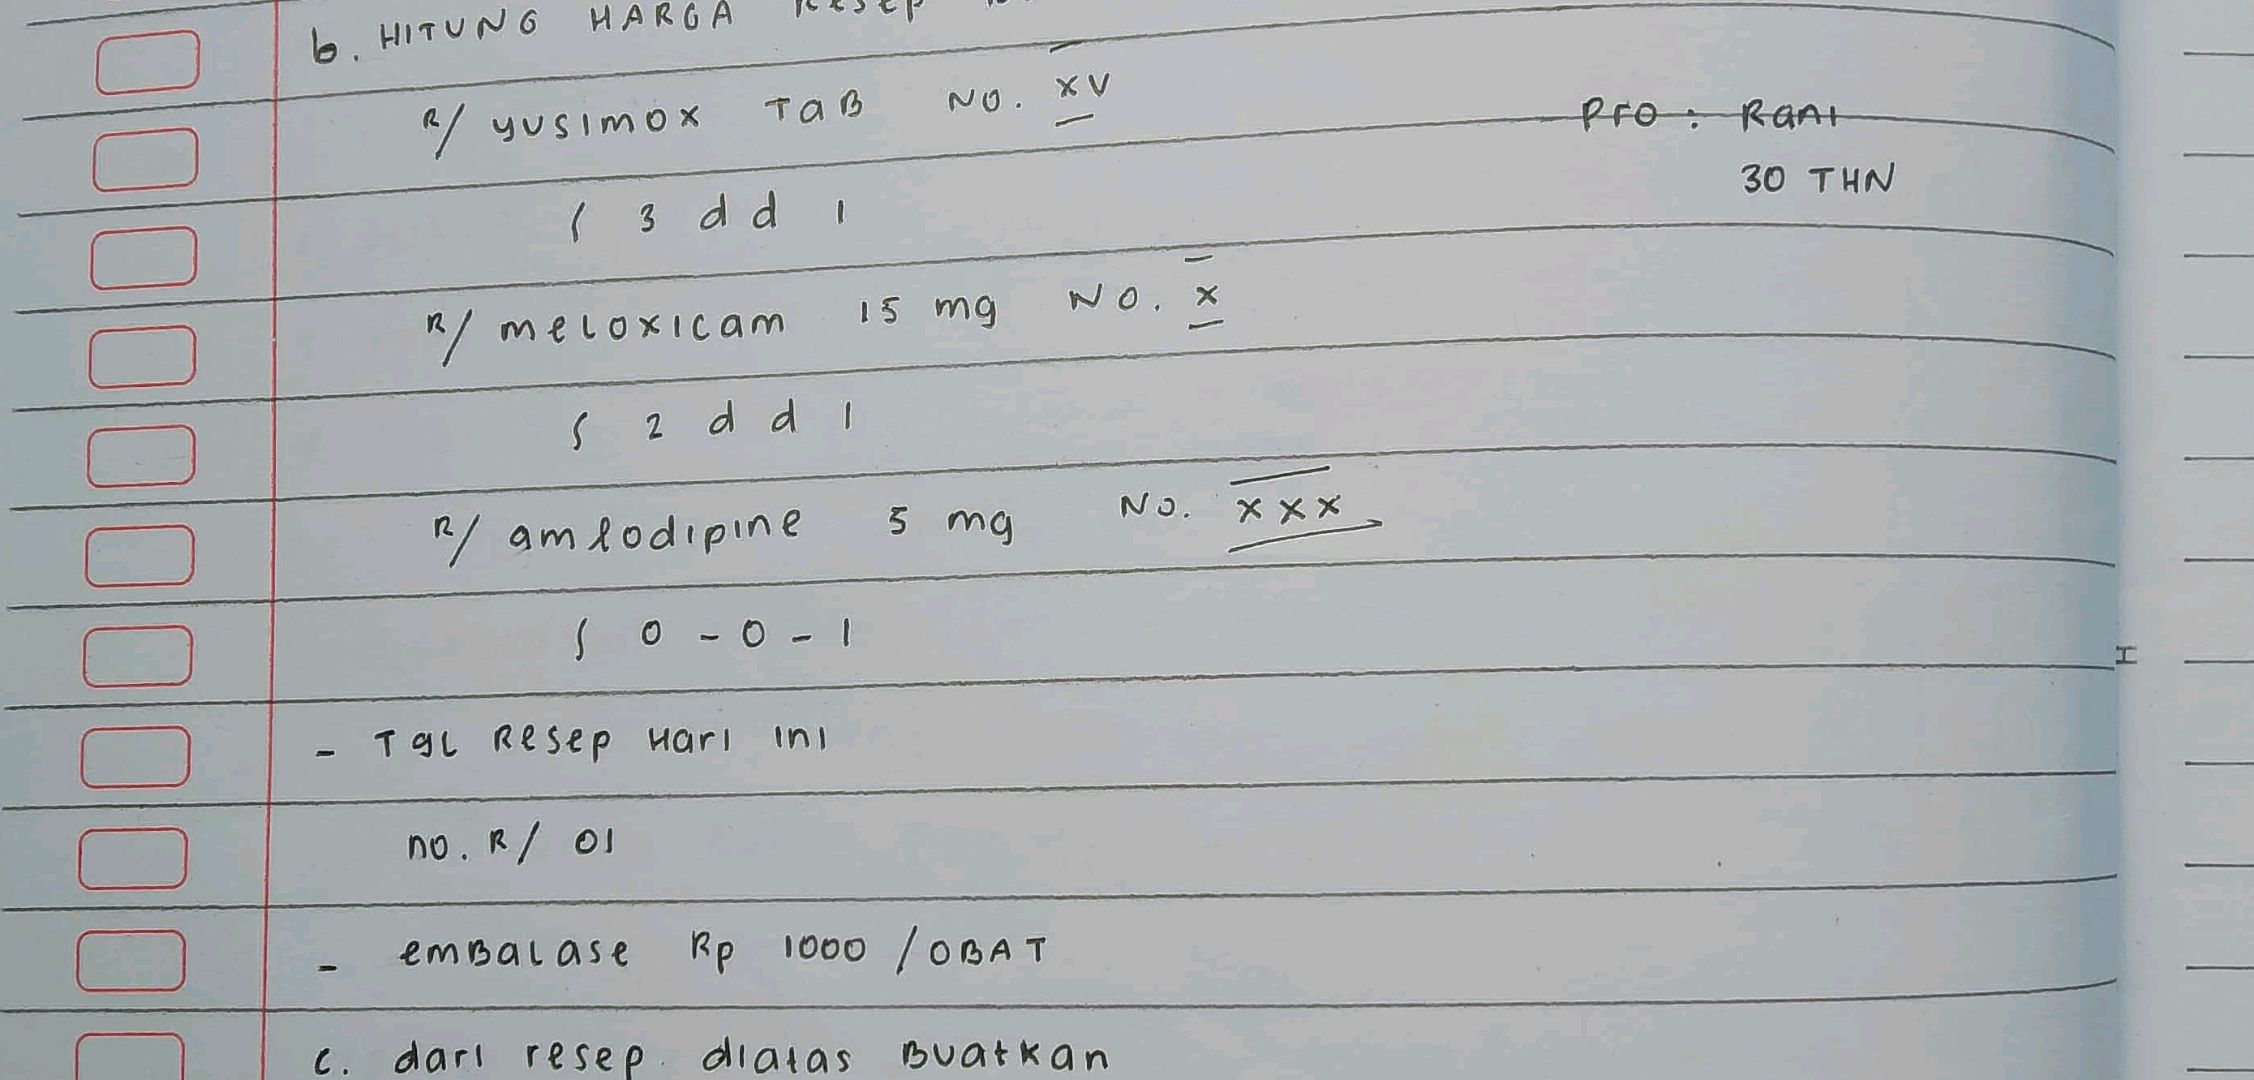 b. HITUNG HARGA Resep
R/ yusimox TaB NO. XV
Pro : Rani
30 THN
∫ 3 d d 1
R/ meloxicam 15 mg NO. X
∫ 2 d d 1
R/ amlodipine 5 mg NO. XXX
∫ 0 - 0 - 1
- Tgl Resep Hari ini
no. R/ 01
- emBalase Rp 1000 / OBAT
c. dari resep diatas Buatkan